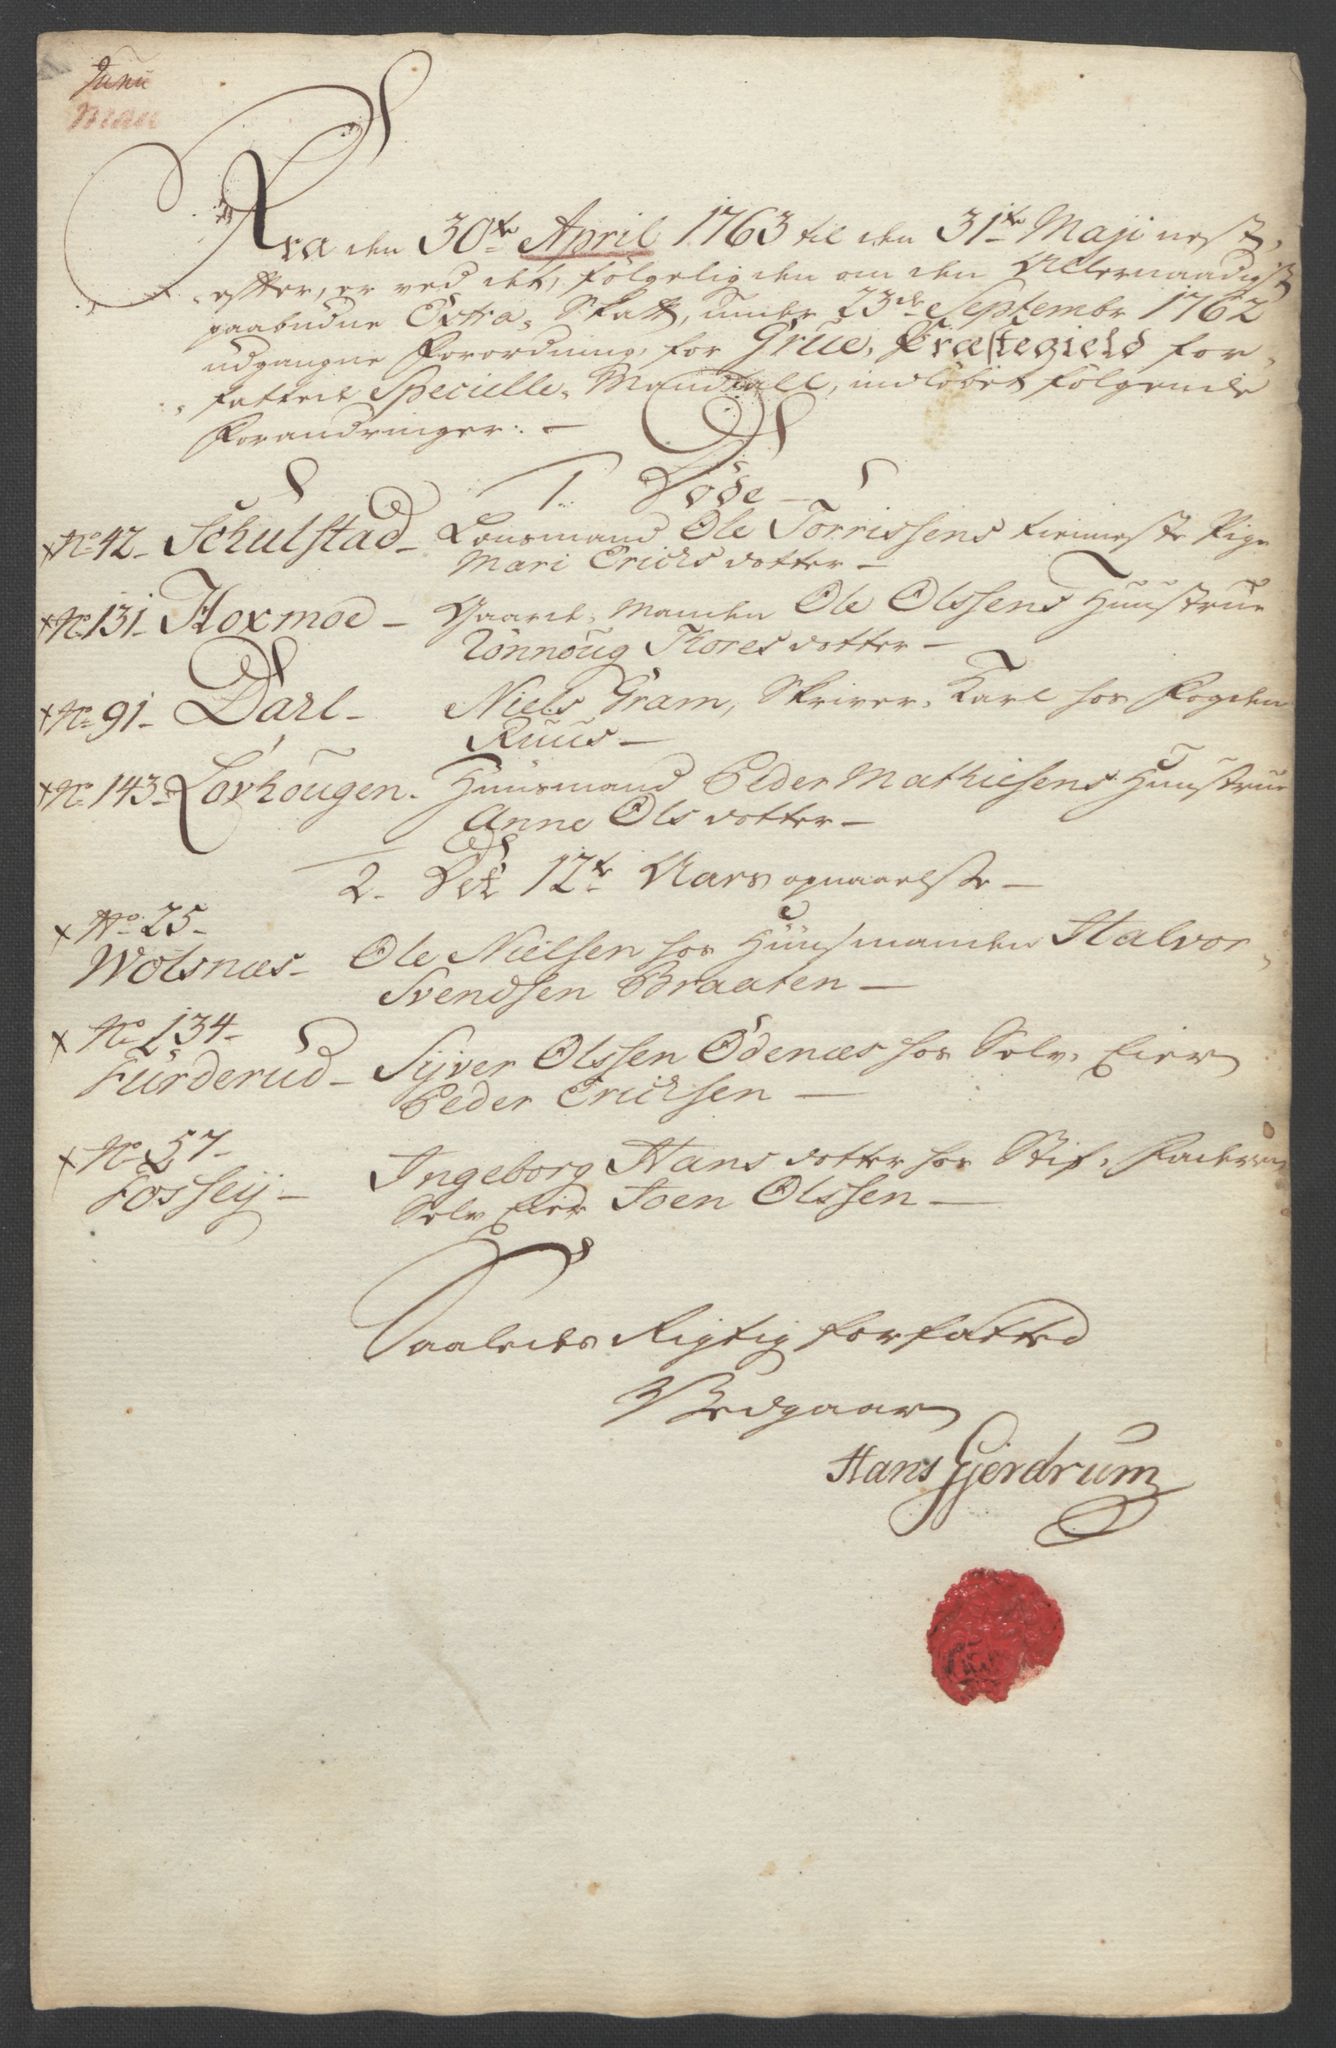 Junii
Maii
Fra den 30te April 1763 til den 31te Maji nest,
efter, er ved det, følgelig den om den Allernaadigst
paabudne Extra, Skatt, under 23de Septembr 1762
udgangne Forordning, for Grue, Præstegield for,
fattede Specielle, Mandtall, indløbet følgende
Forandringer: —
1. Døde —
x No 42 - Schulstad - Lensmand Ole Torrissens tieneste Pige
Mari Erichs dotter —
x No 131 - Hoxmoe - Gaard, Manden Ole Olssens Huustrue
Rönnöug Thores dotter —
x No 91 - Darl - Niels Gram, Skriver, Karl hos Fogden
Ruus —
x No 143 - Lövhöugen - Huusmand Peder Mathiesens Huustrue
Anne Ols dotter —
2. Det 12te Aars opnaaelse —
x No 25 -
Wolsnæs - Ole Nielsen hos Huusmanden Halvor
Svendsen Braaten —
x No 134 -
Furderud - Syver Olssen Ödenæs hos Selv, Eier
Peder Erichsen —
x No 57 -
Fossey - Ingeborg Hans dotter hos Stif, Faderen
Selv Eier Joen Olssen —
Saaledes Rigtig forfatted
Bedgaar
Hans Gjerdrum